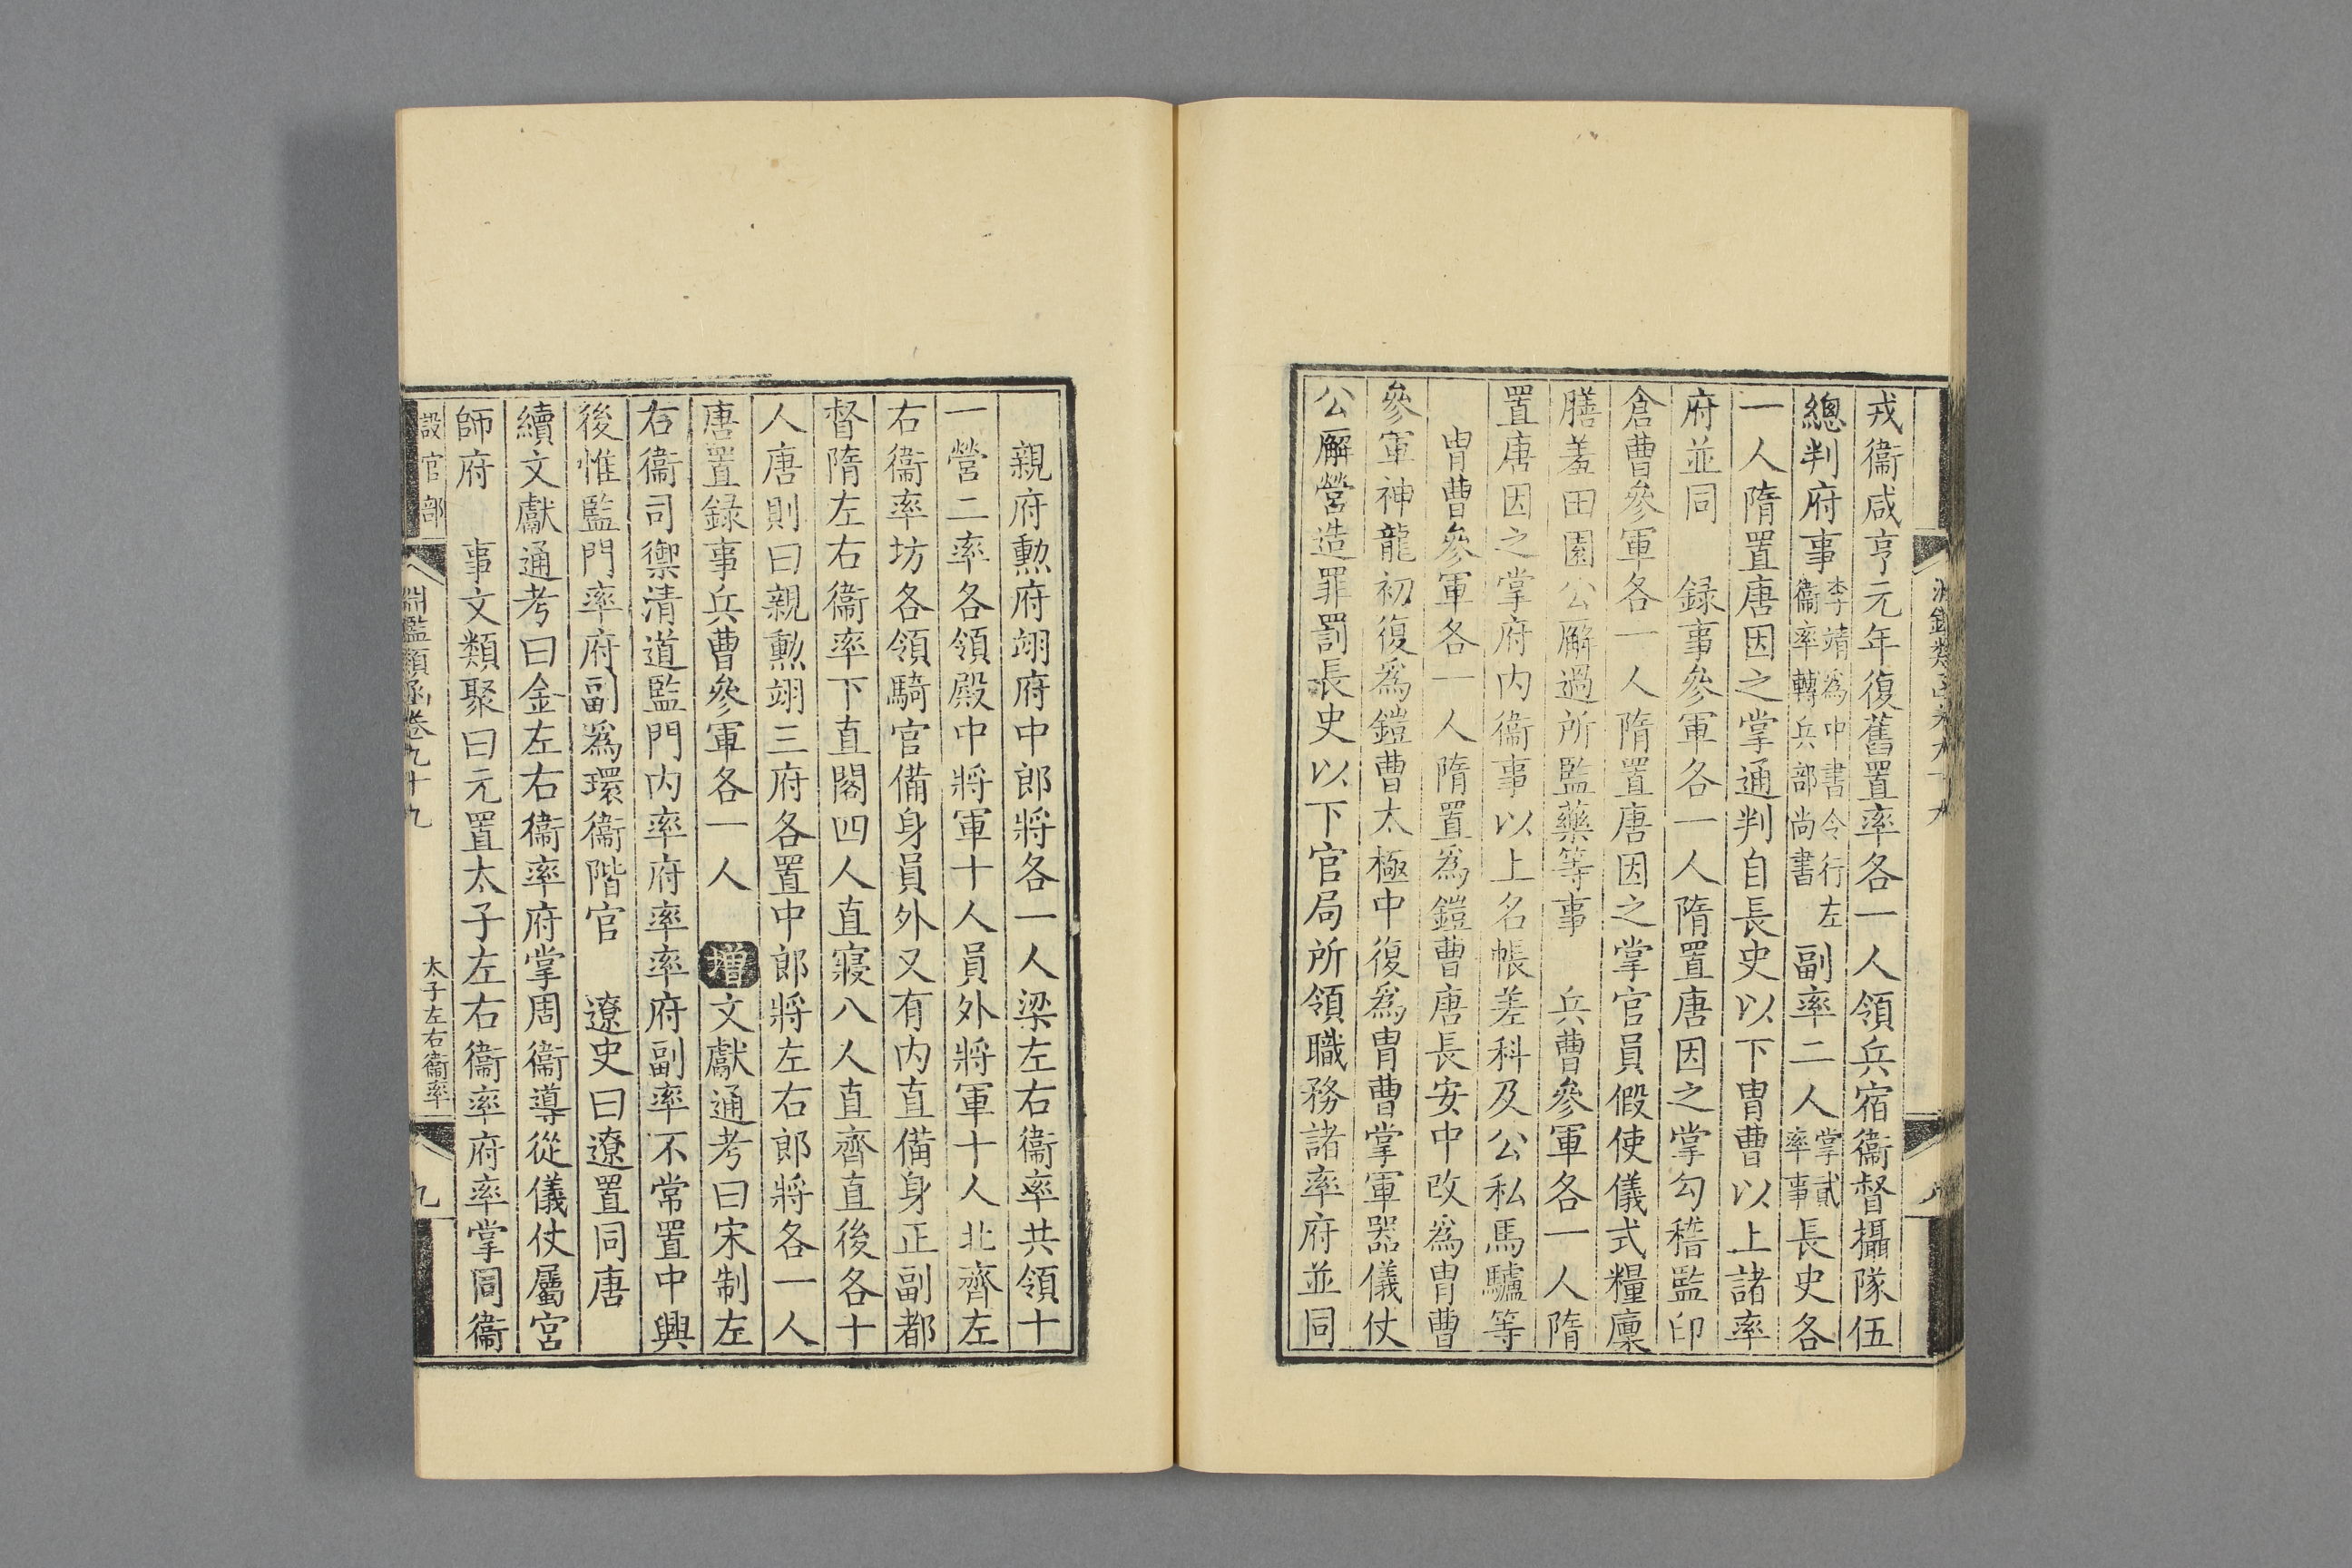 戎衞咸亨元年復舊置率各一人領兵宿衞督攝隊伍
總判府事李靖為中書令行左衞率轉兵部尚書副率二人掌貳率事長史各
一人隋置唐因之掌通判自長史以下胄曹以上諸率
府並同　録事參軍各一人隋置唐因之掌勾稽監印
倉曹參軍各一人隋置唐因之掌官員假使儀式糧廩
膳羞田園公廨過所監藥等事　兵曹參軍各一人隋
置唐因之掌府内衞事以上名帳差科及公私馬驢等
胄曹參軍各一人隋置爲鎧曹唐長安中改爲胄曹
參軍神龍初復爲鎧曹太極中復爲胄曹掌軍器儀仗
公廨營造罪罰長史以下官局所領職務諸率府並同
親府勲府翊府中郎將各一人梁左右衞率共領十
一營二率各領殿中將軍十人員外將軍十人北齊左
右衞率坊各領騎官備身員外又有内直備身正副都
督隋左右衞率下直閤四人直寢八人直齊直後各十
人唐則曰親勲翊三府各置中郎將左右郎將各一人
唐置録事兵曹參軍各一人　增文獻通考曰宋制左
右衞司禦清道監門内率府率率府副率不常置中興
後惟監門率府副爲環衞階官　遼史曰遼置同唐
續文獻通考曰金左右衞率府掌周衞導從儀仗屬宮
師府　事文類聚曰元置太子左右衞率府率掌周衞
設官部
淵鑑類函卷九十九
太子左右衞率
九